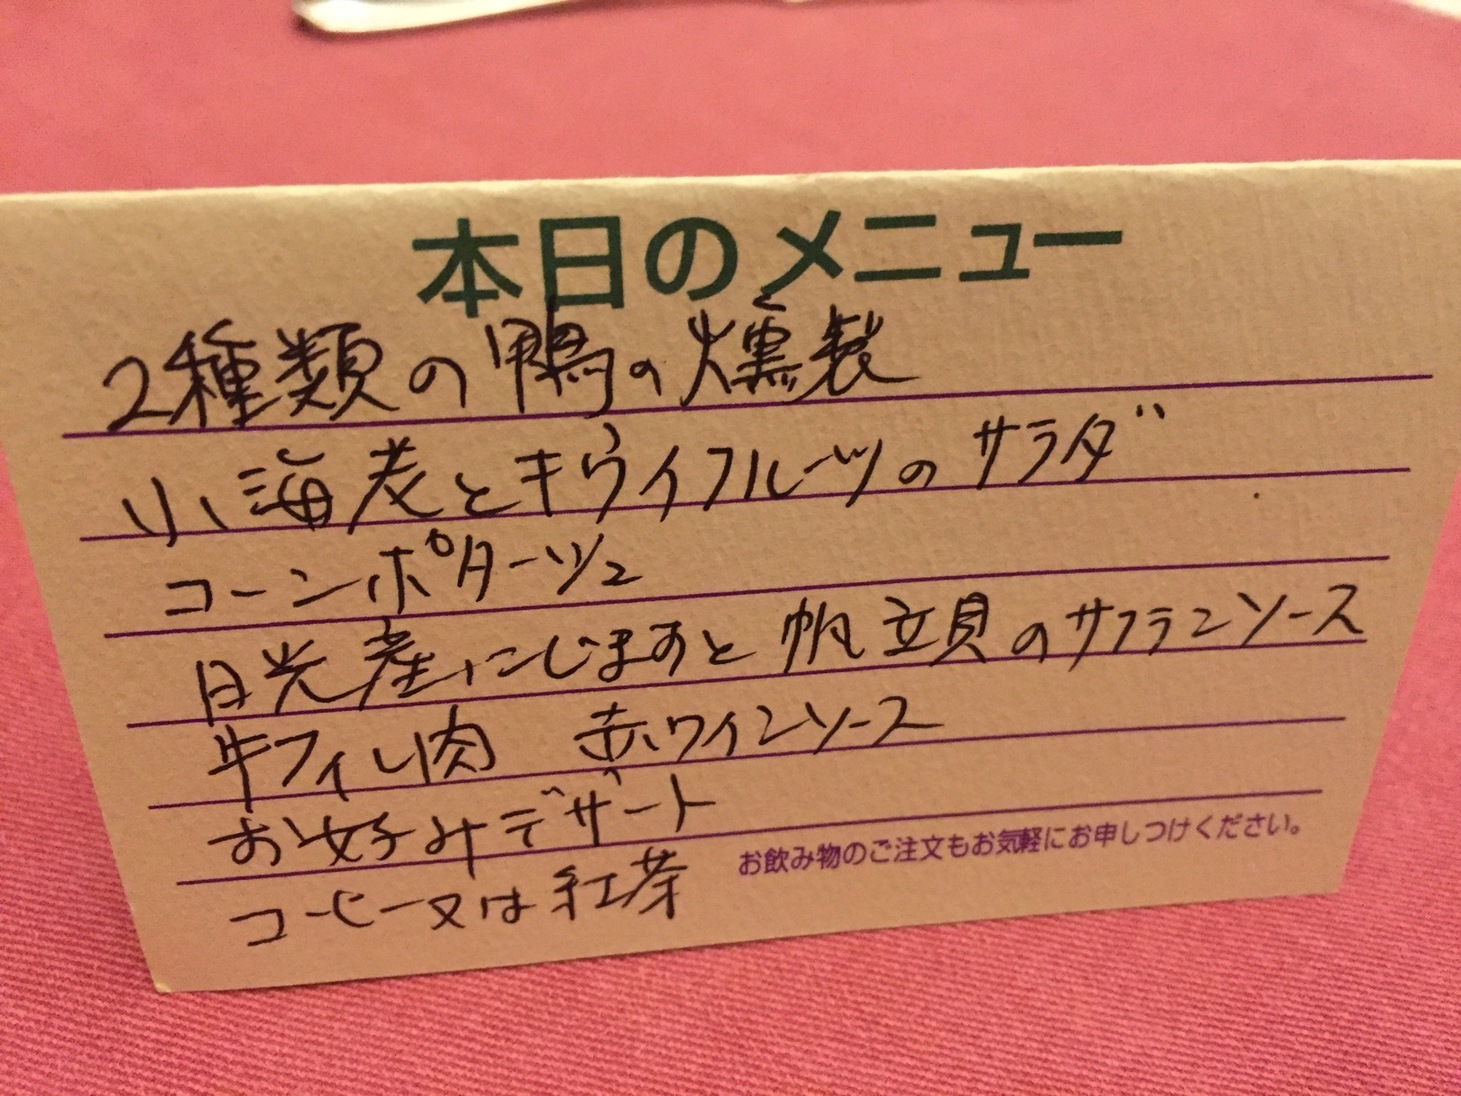 本日のメニュー
2種類の鴨の燻製
小海老とキウイフルーツのサラダ
コーンポタージュ
日光産にじますと帆立貝のサフランソース
牛フィレ肉 赤ワインソース
お好みデザート
お飲み物のご注文もお気軽にお申しつけください。
コーヒー又は紅茶